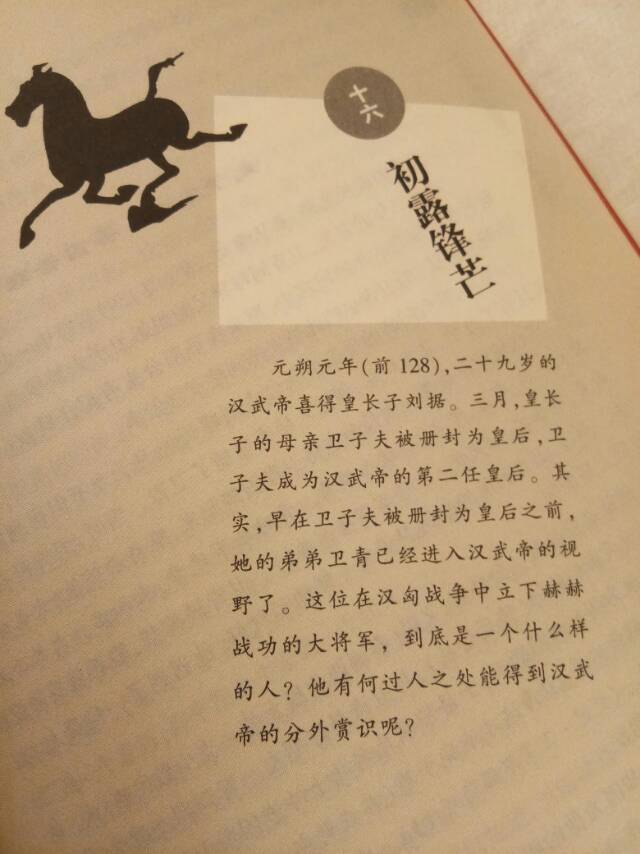 十六
初露锋芒
元朔元年(前128),二十九岁的
汉武帝喜得皇长子刘据。三月,皇长
子的母亲卫子夫被册封为皇后,卫
子夫成为汉武帝的第二任皇后。其
实,早在卫子夫被册封为皇后之前,
她的弟弟卫青已经进入汉武帝的视
野了。这位在汉匈战争中立下赫赫
战功的大将军，到底是一个什么样
的人？他有何过人之处能得到汉武
帝的分外赏识呢？